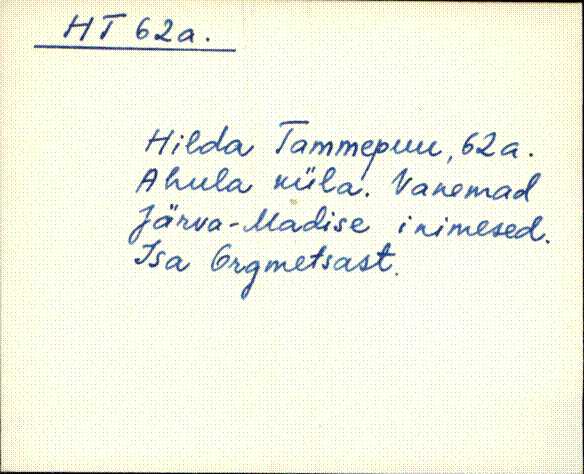 HT 62a.
Hilda Tammepuu, 62a.
Ahula küla. Vanemad
Järva-Madise inimesed.
Isa Orgmetsast.